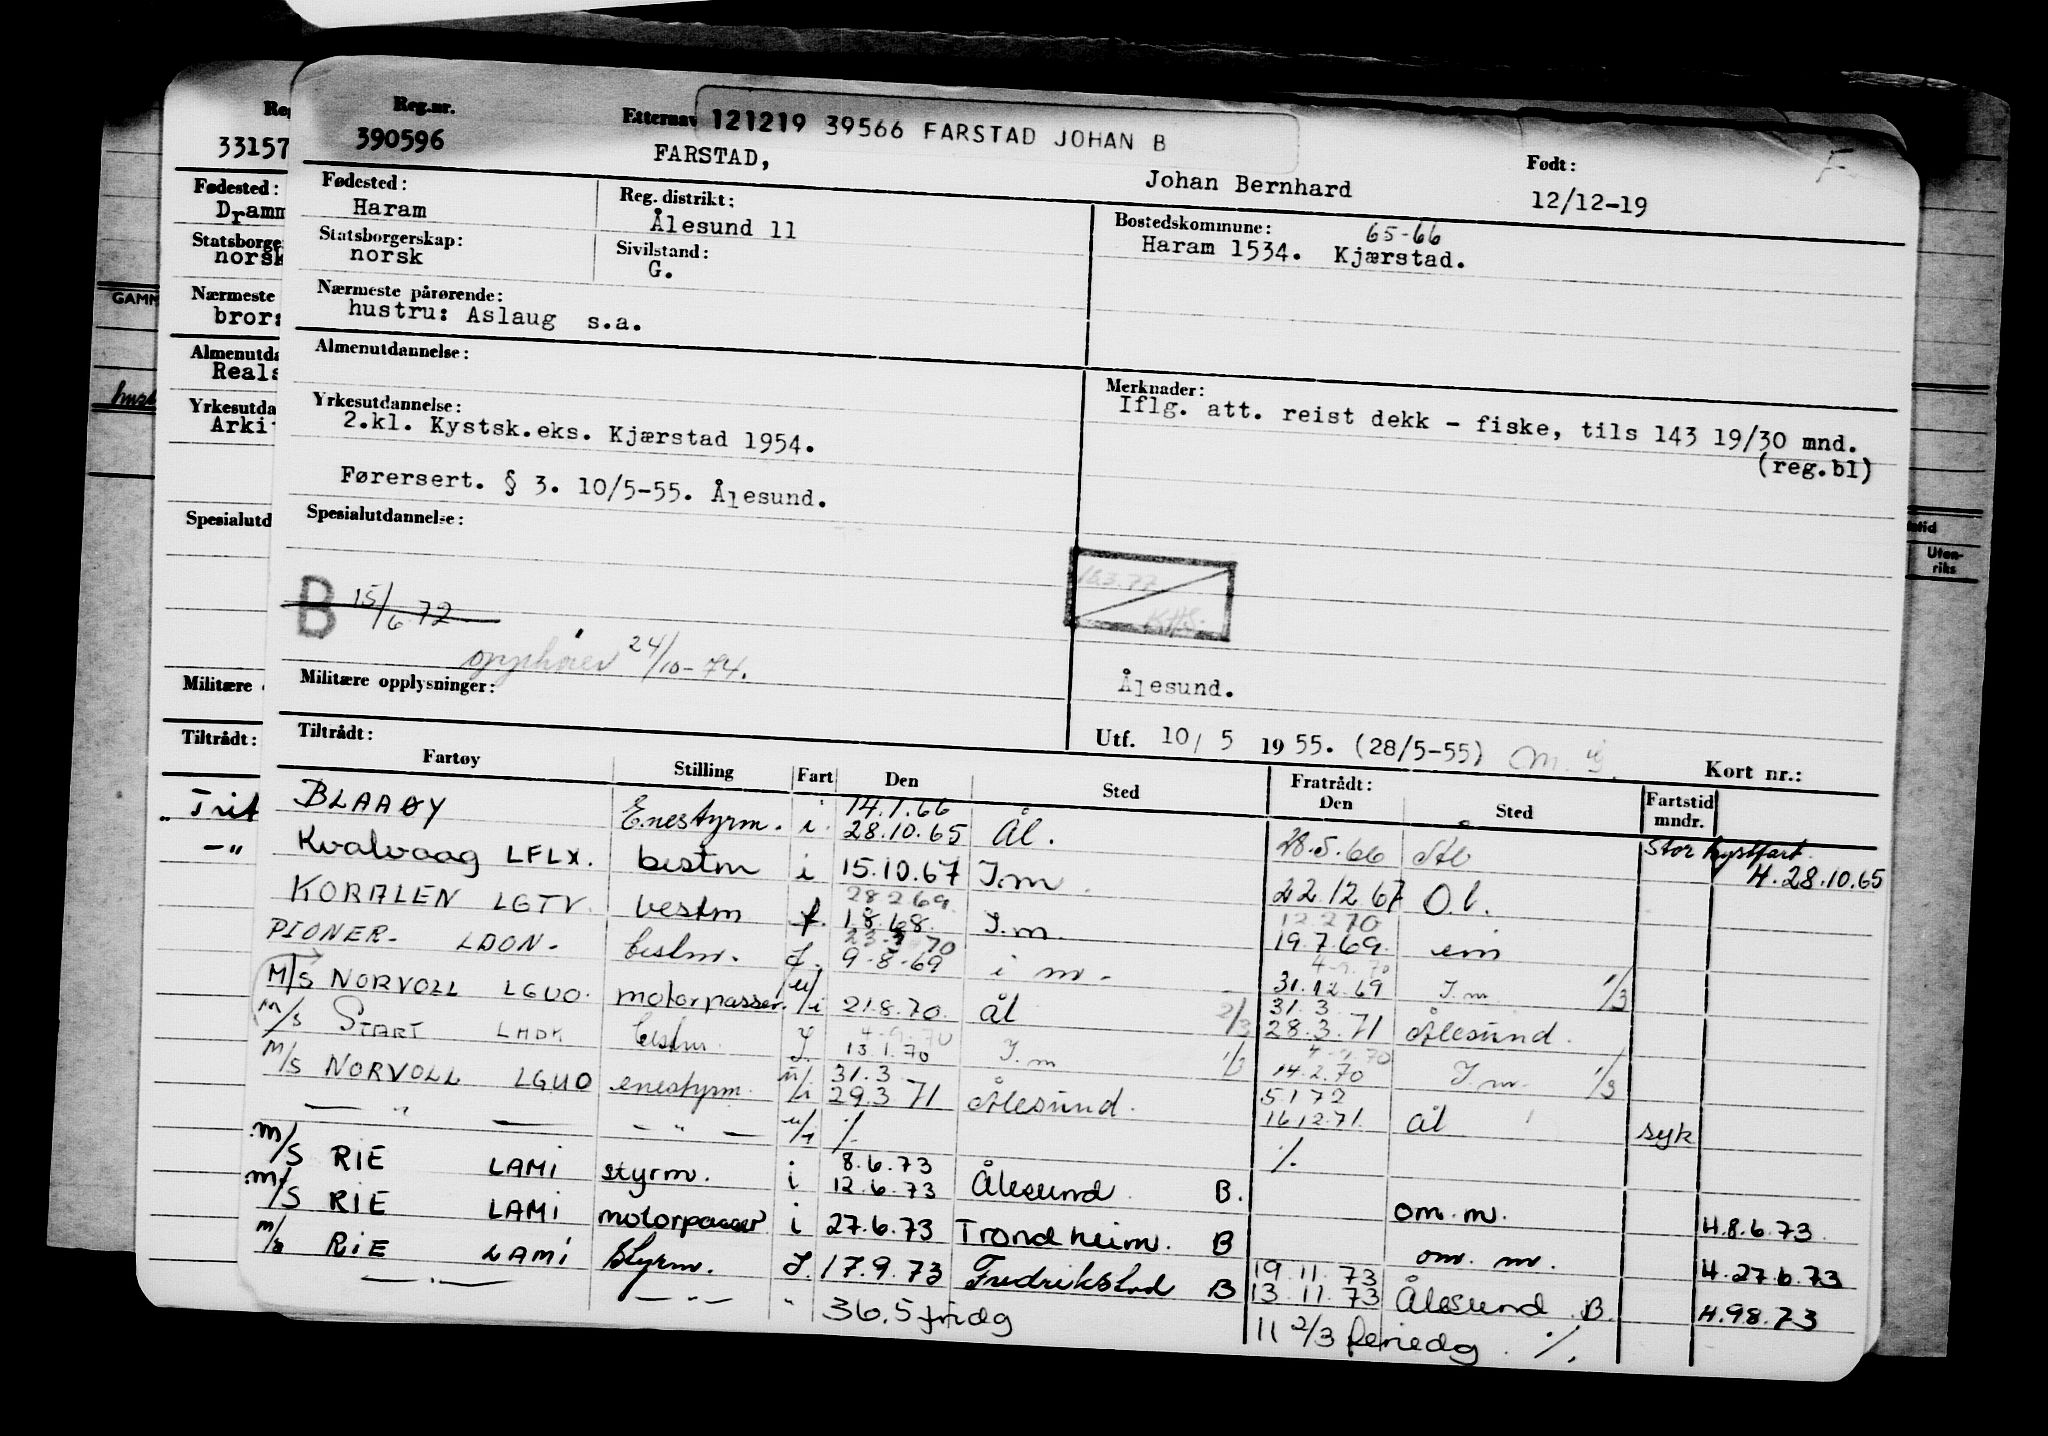 Reg.nr. Etternav 121219 39566 FARSTAD JOHAN B
390596 FARSTAD, Johan Bernhard Født: 12/12-19
Fødested: Reg. distrikt: Bostedskommune: 65-66
Haram Ålesund 11 Haram 1534. Kjærstad.
Statsborgerskap: Sivilstand:
norsk G.
Nærmeste pårørende:
hustru: Aslaug s.a.
Almenutdannelse: Merknader:
Iflg. att. reist dekk - fiske, tils 143 19/30 mnd.
(reg.bl)
Yrkesutdannelse:
2.kl. Kystsk.eks. Kjærstad 1954.
Førersert. § 3. 10/5-55. Ålesund.
Spesialutdannelse:
B 15/6 72
opphører 24/10-74.
K.H.S.
Militære opplysninger: Ålesund.
Utf. 10/ 5 1955. (28/5-55) Kort nr.:
Tiltrådt: Fratrådt:
Fartøy Stilling Fart Den Sted Den Sted Fartstid mndr.
14.1.66
BLAAØY Enestyrm. i. 28.10.65 Ål. 28.5.66 Ål Stor kystfart. H. 28.10.65
Kvalvaag LFLX. bestm i 15.10.67 I.m. 22.12.67 O.l.
28 2 69 12 2 70
KORALEN LGTV. bestm f. 1.8.68. I.m. 19.7.69. em
PIONER. LDON. bestm. f. 9-8-69 i m. 31.12.69 I.m. 1/3
31.3
M/S NORVOLL LGUO. motorpasser. u/i 21.8.70. Ål 2/3 28.3.71 Ålesund.
4-9.70 4-9.70
M/S START LHDK bestm. J. 13.1.70 I.m 1/3 14.2.70 I.m. 1/3
31.3 5 1 72
M/S NORVOLL LGUO enestyrm. u/i 29.3 71 Ålesund. 16 12 71. Ål syk
— " — — " — u/i ٪ ٪
8.6.73
M/S RIE LAMI styrm. i 12.6.73 Ålesund. B. om.m. H.8.6.73.
M/S RIE LAMI motorpasser i 27.6.73 Trondheim. B om. m. H.27.6.73
19.11.73
M/S RIE LAMI Styrm. J. 17.9.73 Fredrikstad B 13.11.73 Ålesund. B. H.98.73
— . — — " — " 36.5 fridg 11 2/3 feriedg. ٪.
Reg
33157
Fødested:
Dramm
Statsborge
norsk
Nærmeste
bror:
Almenutda
Reals
Yrkesutda
Arki
Spesialutd
Militære
Tiltrådt:
„ Trit
— "
GAMM
Uten-
riks